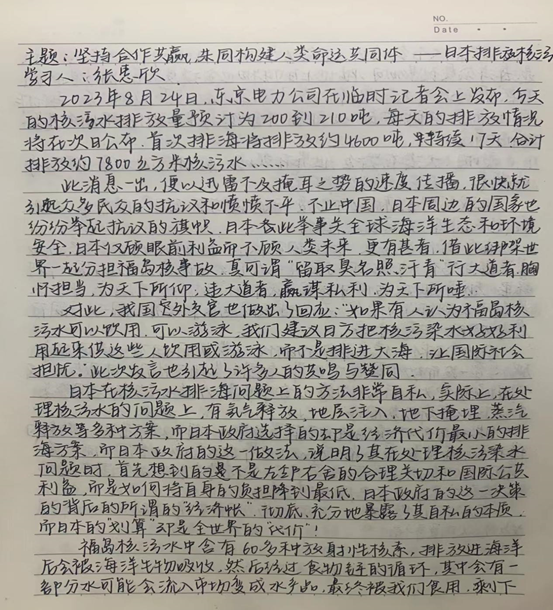 NO.
Date
主题：坚持合作共赢，共同构建人类命运共同体 ——日本排放核污
学习人：张恩欣
2023年8月24日，东京电力公司在临时记者会上发布，今天
的核污水排放量预计为200到210吨，每天的排放情况
将在次日公布，首次排海将排放约4600吨，持续17天，合计
排放约7800立方米核污水……
此消息一出，便以迅雷不及掩耳之势的速度传播，很快就
引起众多民众的抗议和愤愤不平，不止中国，日本周边的国家也
纷纷举起抗议的旗帜，日本此举事关全球海洋生态和环境
安全，日本仅顾眼前利益而不顾人类未来，更有甚者，借此绑架世
界一起分担福岛核事故，真可谓“留取臭名照汗青”行大道者，胸
怀担当，为天下所仰，违大道者，赢谋私利，为天下所唾。
对此，我国官外交官也做出了回应：“如果有人认为福岛核
污水可以饮用，可以游泳，我们建议日方把核污染水好好利
用起来供这些人饮用或游泳，而不是排进大海，让国际社会
担忧。”此次发言也引起了许多人的共鸣与赞同。
日本在核污水排海问题上的方法非常自私，实际上，在处
理核污水的问题上，有氢气释放，地层注入，地下掩埋，蒸汽
释放等多种方案，而日本政府选择的却是经济代价最小的排
海方案，而日本政府的这一做法，说明了其在处理核污染水
问题时，首先想到的是不是左邻右舍的合理关切和国际公共
利益，而是如何将自身的负担降到最低，日本政府的这一决策
的背后的所谓的“经济帐”，彻底，充分地暴露了其自私的本质，
而日本的“划算”却是全世界的“代价”！
福岛核污水中含有60多种放射性核素，排放进海洋
后会被海洋生物吸收，然后经过食物链的循环，其中会有一
部分水可能会流入市场变成水产品，最终被我们食用，剩下